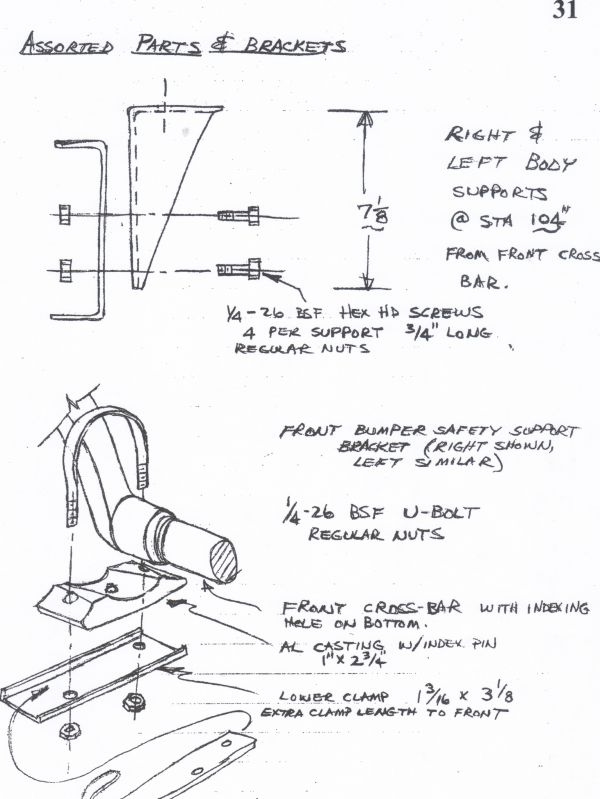 31
ASSORTED PARTS & BRACKETS
RIGHT &
LEFT BODY
SUPPORTS
@ STA 104"
FROM FRONT CROSS
BAR.
7 1/8
1/4-26 BSF HEX HD SCREWS
4 PER SUPPORT 3/4" LONG
REGULAR NUTS
FRONT BUMPER SAFETY SUPPORT
BRACKET (RIGHT SHOWN,
LEFT SIMILAR)
1/4-26 BSF U-BOLT
REGULAR NUTS
FRONT CROSS-BAR WITH INDEXING
HOLE ON BOTTOM.
AL CASTING W/INDEX PIN
1" X 2 3/4"
LOWER CLAMP 1 3/16 X 3 1/8
EXTRA CLAMP LENGTH TO FRONT